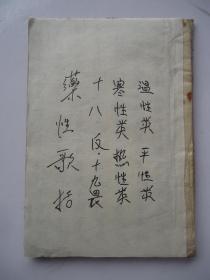 温性类 平性类
寒性类 热性类
十八反·十九畏
藥性歌括